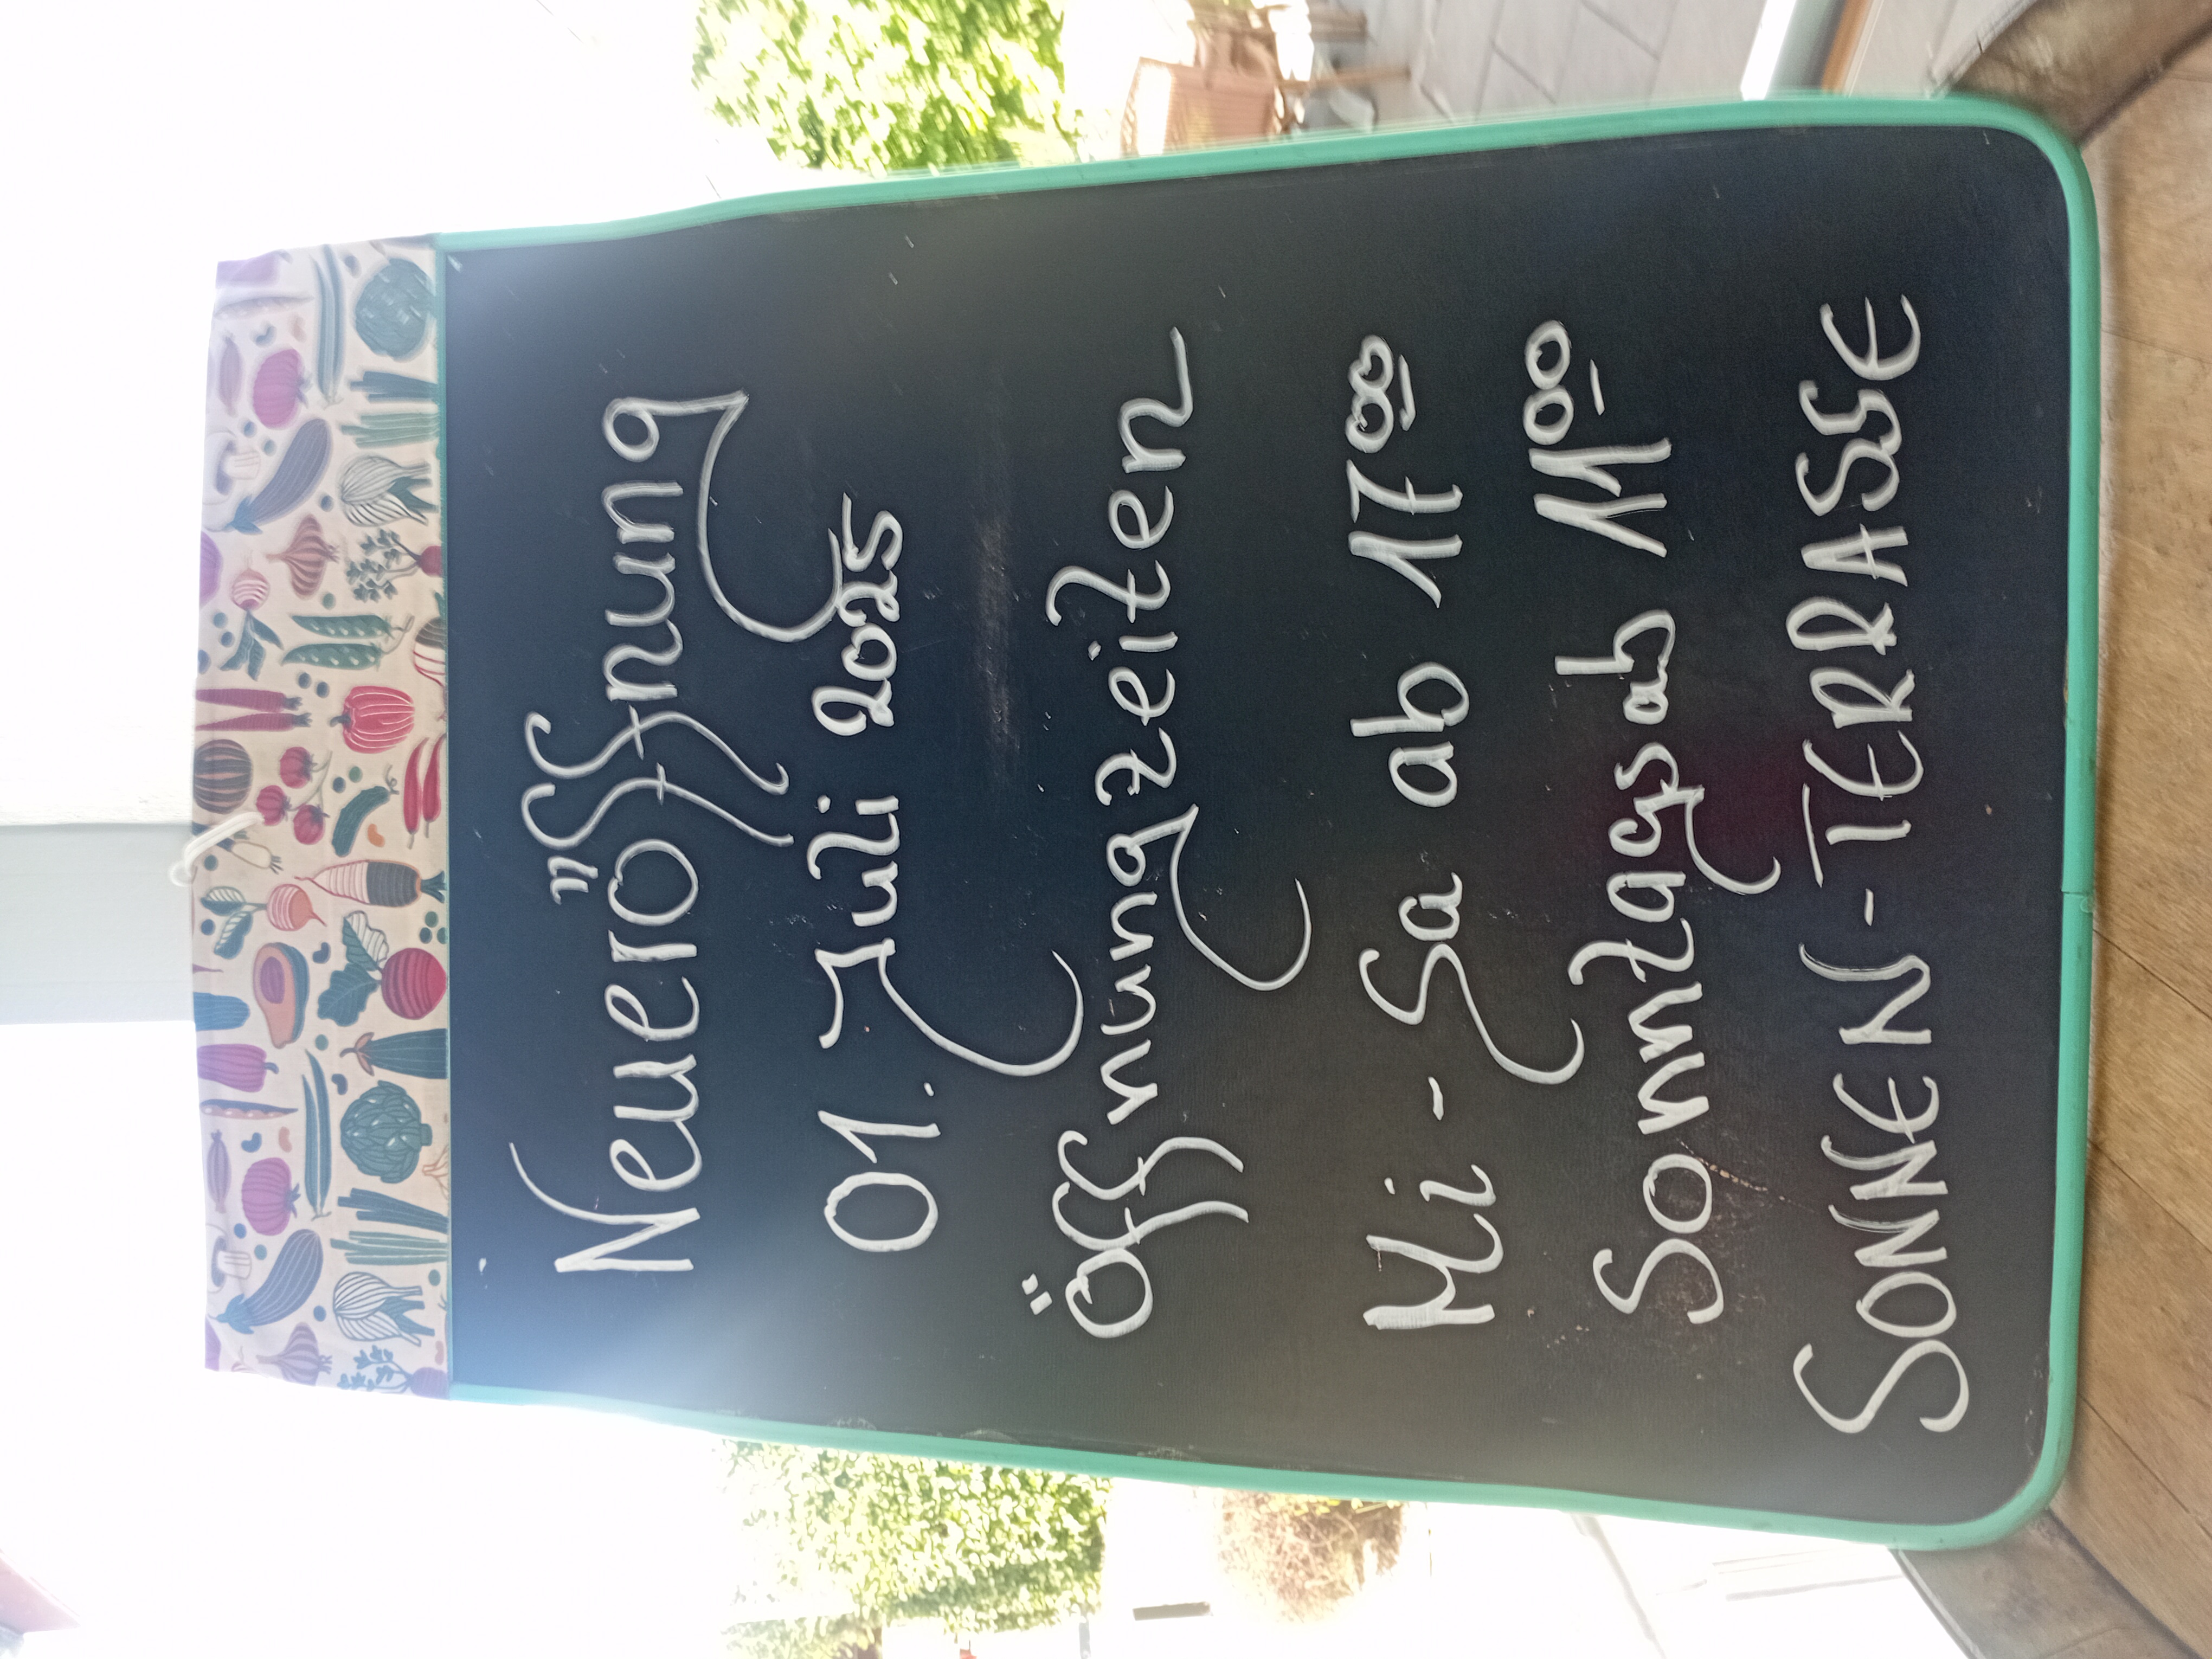 Neueröffnung
01. Juli 2025
Öffnungzeiten
Mi - Sa ab 17⁰⁰
Sonntags ab 11⁰⁰
SONNEN-TERRASSE